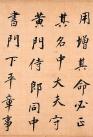 用增其命必正
其名中大夫守
黄門侍郎同中
書門下平章事